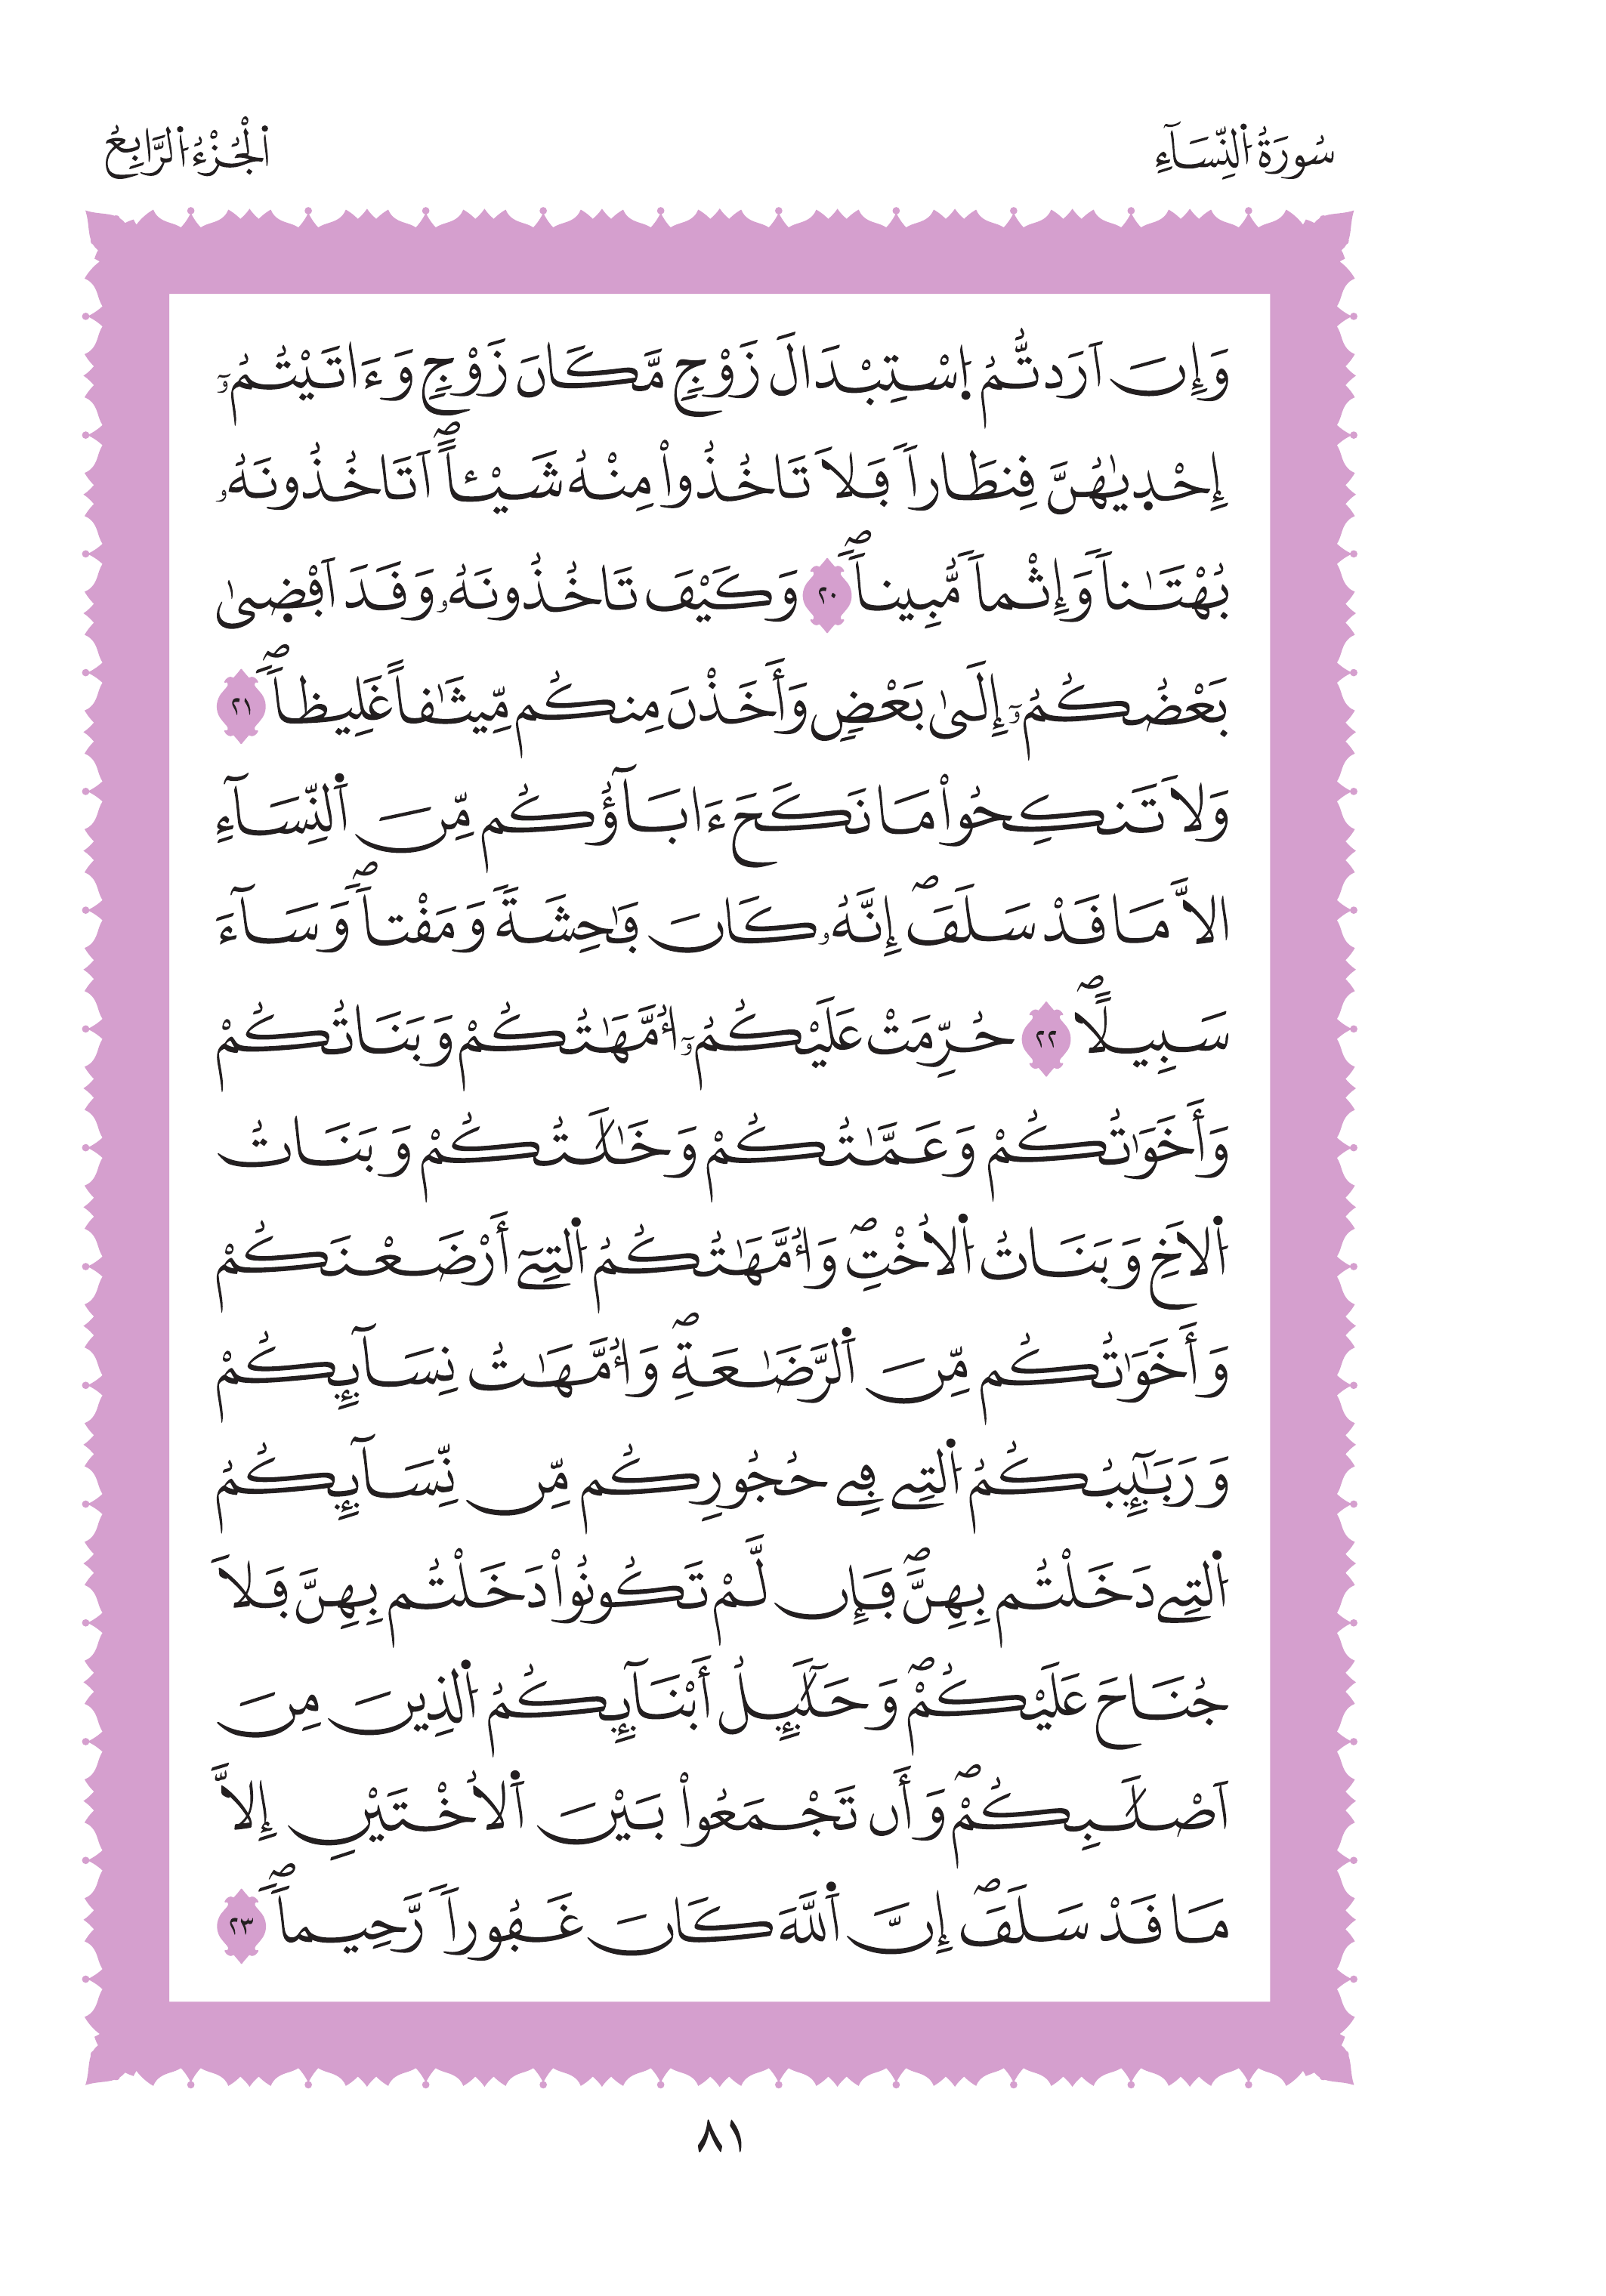 سُورَةُ اُ۬لنِّسَآءِ
اُ۬لْجُزْءُ اُ۬لرَّابِعُ
وَإِنَ اَرَدتُّمُ اُ۪سْتِبْدَالَ زَوْجٖ مَّكَانَ زَوْجٖ وَءَاتَيْتُمُۥٓ
إِحْد۪يٰهُنَّ قِنطَاراٗ فَلَا تَاخُذُواْ مِنْهُ شَيْـٔاًۖ اَتَاخُذُونَهُۥ
بُهْتَٰناٗ وَإِثْماٗ مُّبِيناٗۖ ٢٠ وَكَيْفَ تَاخُذُونَهُۥ وَقَدَ اَفْض۪يٰ
بَعْضُكُمُۥٓ إِلَيٰ بَعْضٖ وَأَخَذْنَ مِنكُم مِّيثَٰقاً غَلِيظاٗۖ ٢١
وَلَا تَنكِحُواْ مَا نَكَحَ ءَابَآؤُكُم مِّنَ اَ۬لنِّسَآءِ
الَّا مَا قَدْ سَلَفَۖ إِنَّهُۥ كَانَ فَٰحِشَةٗ وَمَقْتاٗۖ وَسَآءَ
سَبِيلًاۖ ٢٢ حُرِّمَتْ عَلَيْكُمُۥٓ أُمَّهَٰتُكُمْ وَبَنَاتُكُمْ
وَأَخَوَٰتُكُمْ وَعَمَّٰتُكُمْ وَخَٰلَٰتُكُمْ وَبَنَاتُ
اُ۬لَاخِ وَبَنَاتُ اُ۬لُاخْتِۖ وَأُمَّهَٰتُكُمُ اُ۬لتِےٓ أَرْضَعْنَكُمْ
وَأَخَوَٰتُكُم مِّنَ اَ۬لرَّضَٰعَةِۖ وَأُمَّهَٰتُ نِسَآئِكُمْ
وَرَبَٰٓئِبُكُمُ اُ۬لتِے فِے حُجُورِكُم مِّن نِّسَآئِكُمُ
اُ۬لتِے دَخَلْتُم بِهِنَّۖ فَإِن لَّمْ تَكُونُواْ دَخَلْتُم بِهِنَّ فَلَا
جُنَاحَ عَلَيْكُمْۖ وَحَلَٰٓئِلُ أَبْنَآئِكُمُ اُ۬لذِينَ مِنَ
اَصْلَٰبِكُمْۖ وَأَن تَجْمَعُواْ بَيْنَ اَ۬لُاخْتَيْنِ إِلَّا
مَا قَدْ سَلَفَۖ إِنَّ اَ۬للَّهَ كَانَ غَفُوراٗ رَّحِيماٗۖ ٢٣
٨١